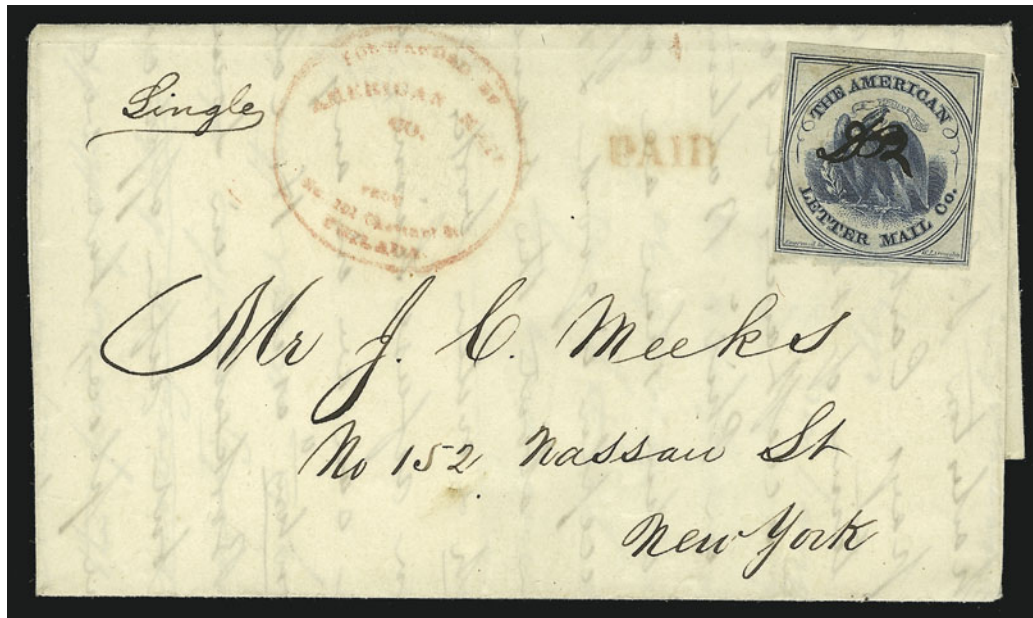 Single
FORWARDED BY
AMERICAN MAIL
CO.
FROM
No. 101 Chesnut St.
PHILADA.
PAID
THE AMERICAN
LETTER MAIL Co.
Mr J. C. Meeks
No 152 Nassau St
New York